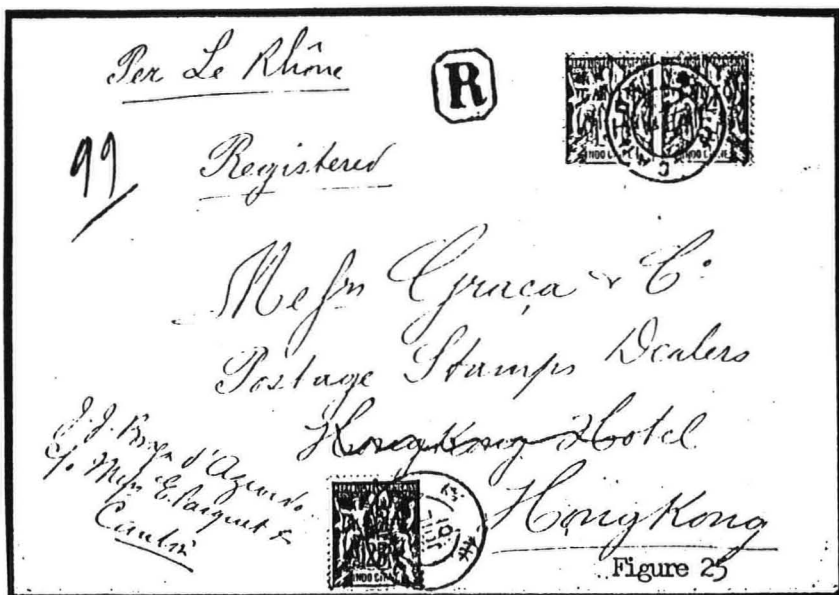 Per Le Rhône
R
99
Registered
INDO CHINE
Messrs Graça & Co
Postage Stamps Dealers
HongKong Hotel
HongKong
J. J. d'Azevedo
c/o Messrs E. Pasquet &
Canton
INDO CHINE
Figure 25